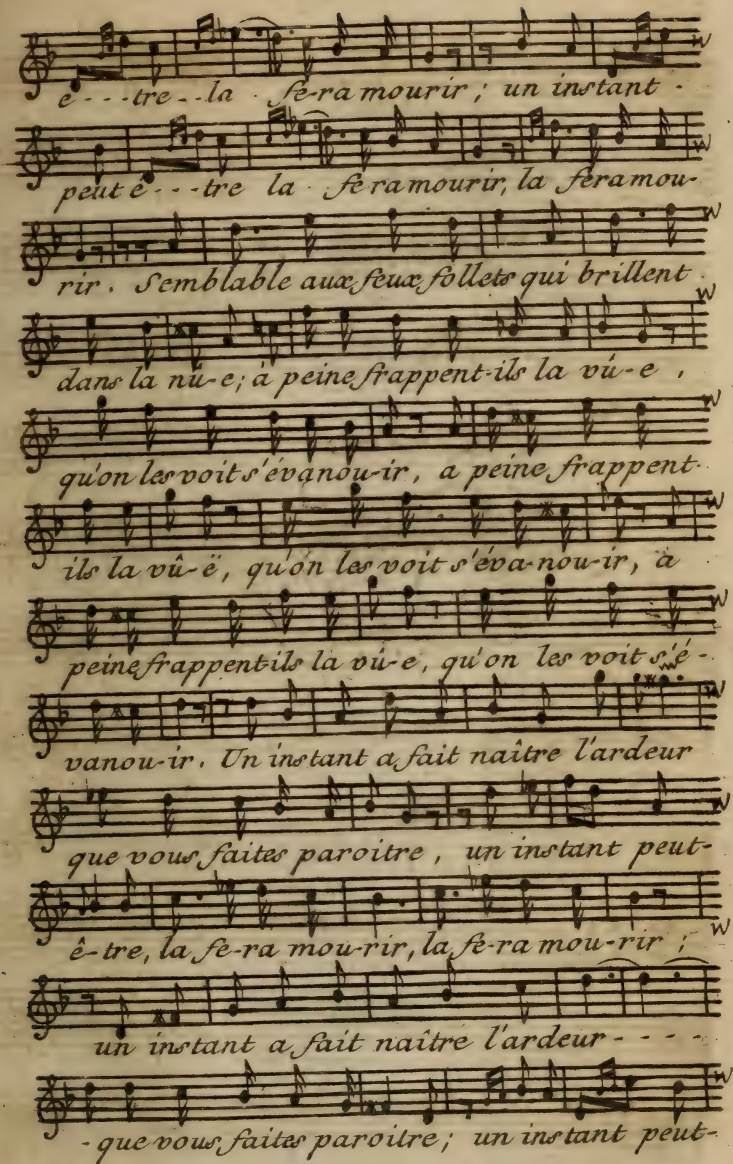 e - - - tre - - la · fe-ra mourir ; un instant -
peut ê - - - tre la · fe ra mourir, la fera mou-
rir . Semblable aux feux follets qui brillent
dans la nü-e ; à peine frappent-ils la vû-e ,
qu'on les voit s'évanou-ir, a peine frappent-
ils la vû-ë, qu'on les voit s'éva-nou-ir, à
peine frappent-ils la vû-e, qu'on les voit s'é-
vanou-ir. Un instant a fait naître l'ardeur
que vous faites paroitre , un instant peut-
ê-tre, la fe-ra mou-rir, la fe-ra mou-rir ;
un instant a fait naître l'ardeur - - - -
- que vous faites paroitre ; un instant peut-